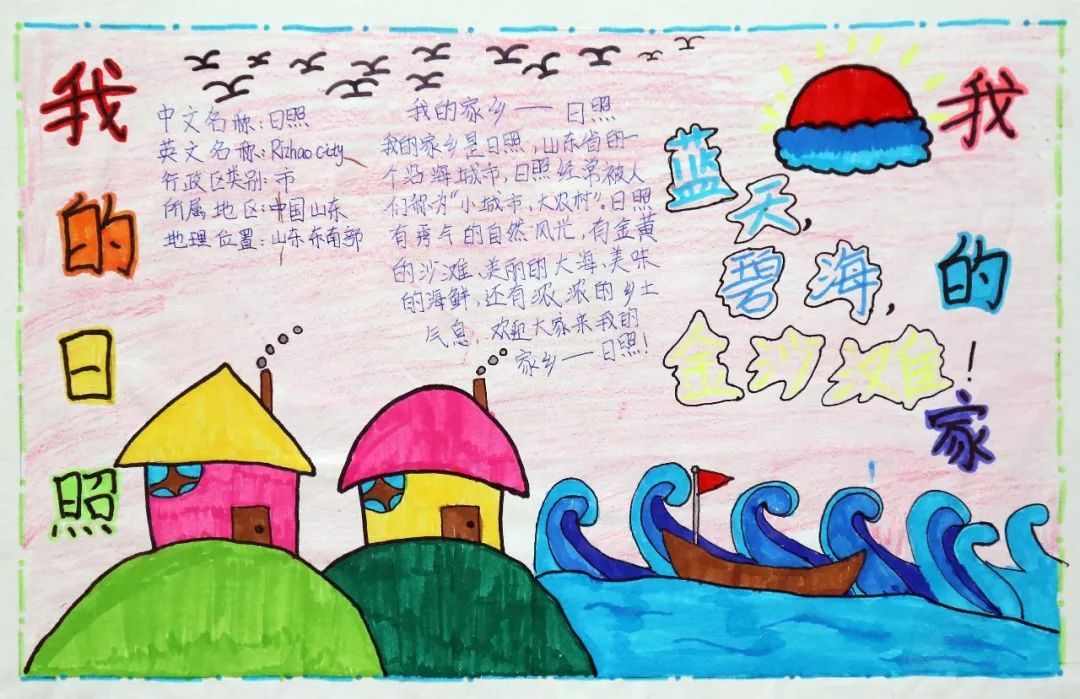 我的日照
中文名称:日照
英文名称:Rizhao city
行政区类别:市
所属地区:中国山东
地理位置:山东东南部
我的家乡——日照
我的家乡是日照,山东省的一
个沿海城市,日照经常被人
们称为“小城市,大农村”。日照
有秀气的自然风光,有金黄
的沙滩、美丽的大海、美味
的海鲜,还有浓浓的乡土
气息,欢迎大家来我的
家乡——日照!
蓝天,
碧海,
金沙滩!
我的家